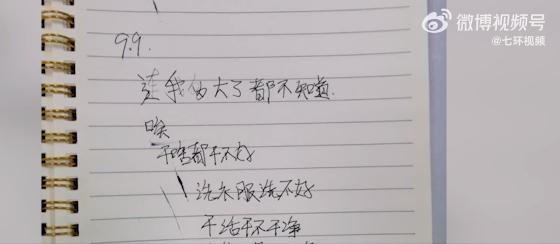 微博视频号
@七环视频
9.9.
连我多大了都不知道
唉
干啥都干不好
洗衣服洗不好
干活干不干净